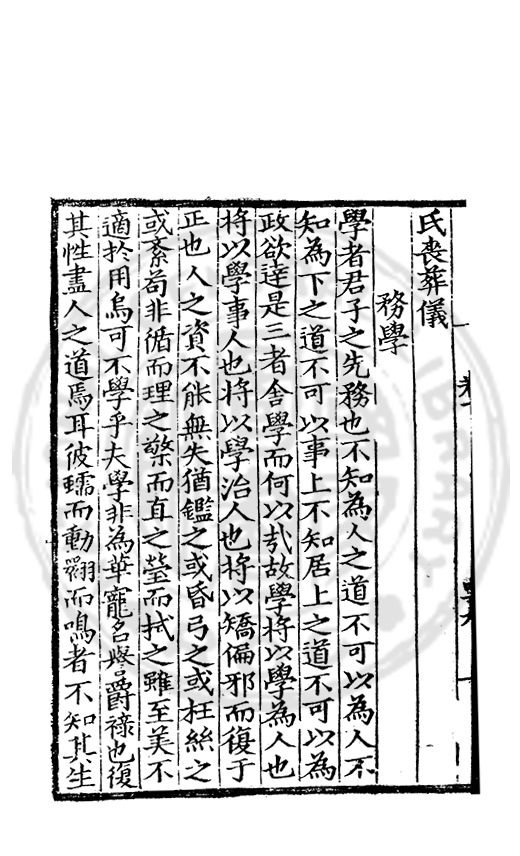 氏喪葬儀
務學
學者君子之先務也不知為人之道不可以為人不
知為下之道不可以事上不知居上之道不可以為
政欲達是三者舍學而何以㢤故學將以學為人也
將以學事人也將以學治人也將以矯偏邪而復于
正也人之資不能無失猶鑑之或昏弓之或枉絲之
或紊苟非循而理之檠而直之瑩而拭之雖至美不
適於用烏可不學乎夫學非為華寵名譽爵祿也復
其性盡人之道焉耳彼蠕而動翾而鳴者不知其生